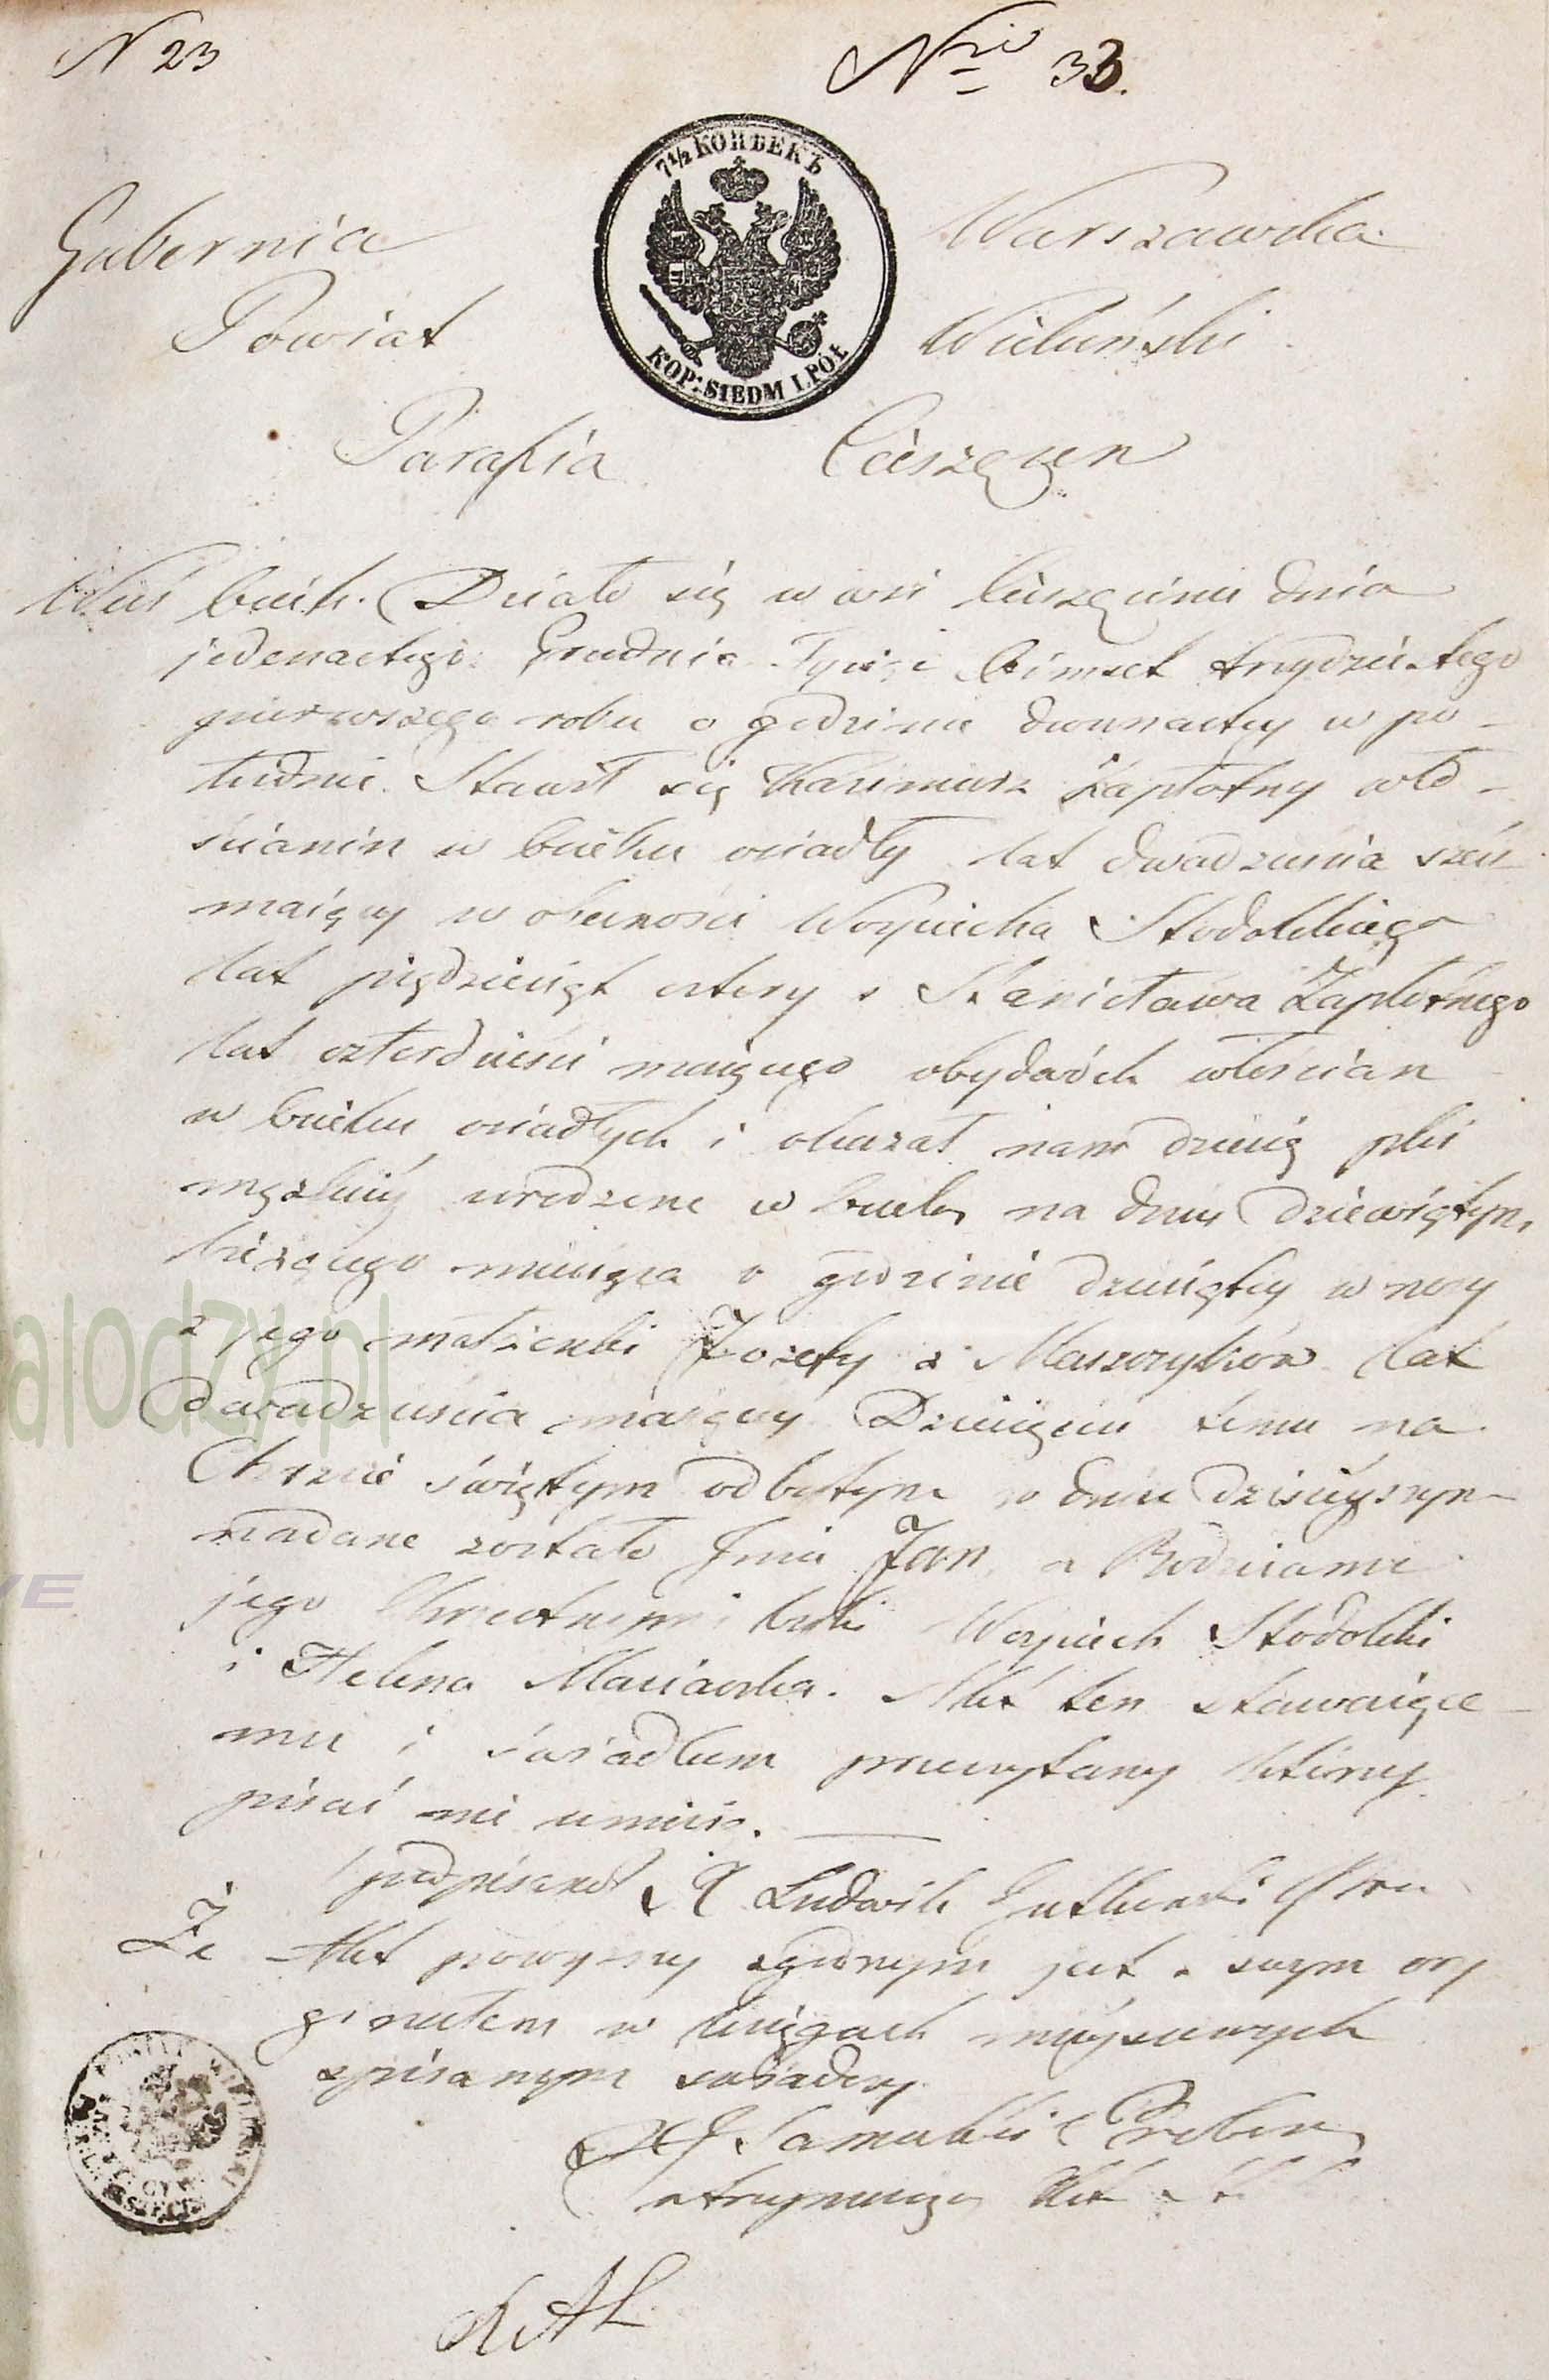 N 23
Nro 33.
7½ КОПѢЕКЪ
KOP: SIEDM I PÓŁ
Gubernia Warszawska
Powiat Wieluński
Parafia Cieszęcin
Wieś Działo się w wsi Cieszęcinie dnia
jedenastego Grudnia Tysiąc Ośmset trzydziestego
pierwszego roku o godzinie dwunastey w po-
łudnie. Stawił się Kazimierz Zapłotny wło-
ścianin w osiadły lat dwadzieścia sześć
maiący w obecności Woyciecha Stodolskiego
lat pięćdziesiąt cztery i Stanisława Zapłotnego
lat czterdzieści maiącego obydwóch włościan
w osiadłych i okazał nam dziecię płci
męzkiey urodzone w na dniu dziewiątym
bieżącego miesiąca o godzinie dziesiątey w nocy
z jego małżonki Jozefy z Maszczyków lat
dwadzieścia maiącey Dziecięciu temu na
Chrzcie świętym odbytym w dniu dzisieyszym
nadane zostało Jmie Jan, a Rodzicami
jego Chrzestnemi byli Woyciech Stodolski
i Helena. Akt ten stawaiące-
mu i świadkom przeczytany którzy
pisać nie umieią.
podpisano X Ludwik
Że Akt powyższy zgodnym jest z swym ory
ginałem w księgach mieyscowych
spisanym świadczy
X J Samulski
utrzymuiący Akt
alodzy.pl